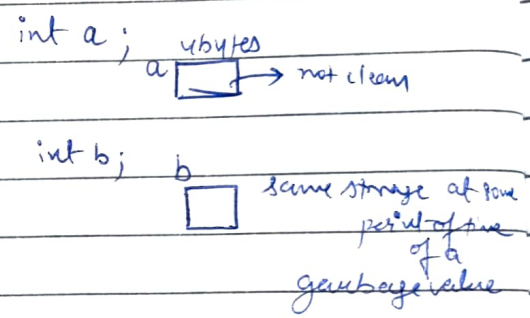 int a;
4bytes
a → not clean
int b;
b
same storage at some
period of time
of a
garbage value